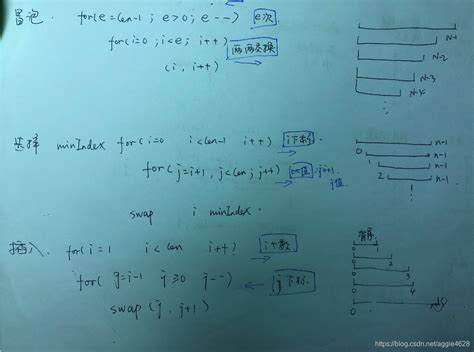 冒泡. for(e=len-1 ; e>0; e--) e次
for(i=0 ; i<e; i++) 两两交换
(i, i++)
N-1
N-2
N-3
N-4
选择 minIndex for(i=0 i<len-1 i++) i下标
for(j=i+1, j<len; j++)
swap i minIndex.
0 n-1
1 n-1
2 n-1
插入. for(i=1 i<len i++) i个数
for( j=i-1 j≥0 j--) j下标
swap(j, j+1)
有序
0
0 2
0 3
0 4
0
https://blog.csdn.net/aggie4628